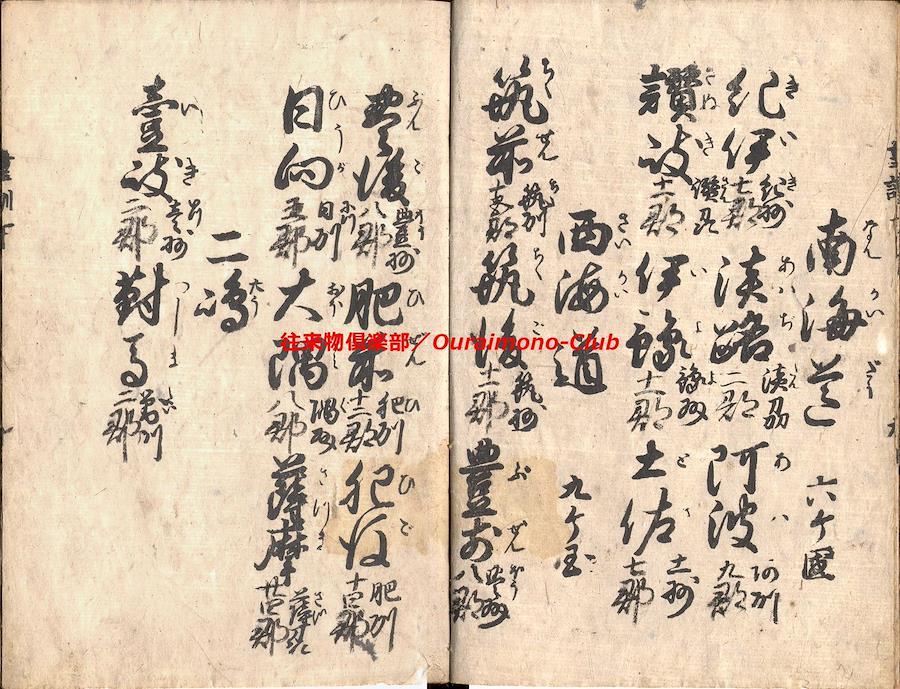 南海道 六ケ國
紀伊 紀州 七郡 淡路 淡州 二郡 阿波 阿州 九郡
讃岐 讃州 十一郡 伊豫 豫州 土佐 土州 七郡
西海道 九ケ国
筑前 筑州 筑後 筑州 豊前 豊州 八郡
豊後 豊州 八郡 肥前 肥州 十二郡 肥後 肥州 十四郡
日向 日州 五郡 大隅 隅州 八郡 薩摩 薩州 廿四郡
二嶋
壹岐 壱州 二郡 對馬 二郡
往来物倶楽部／Ouraimono-Club